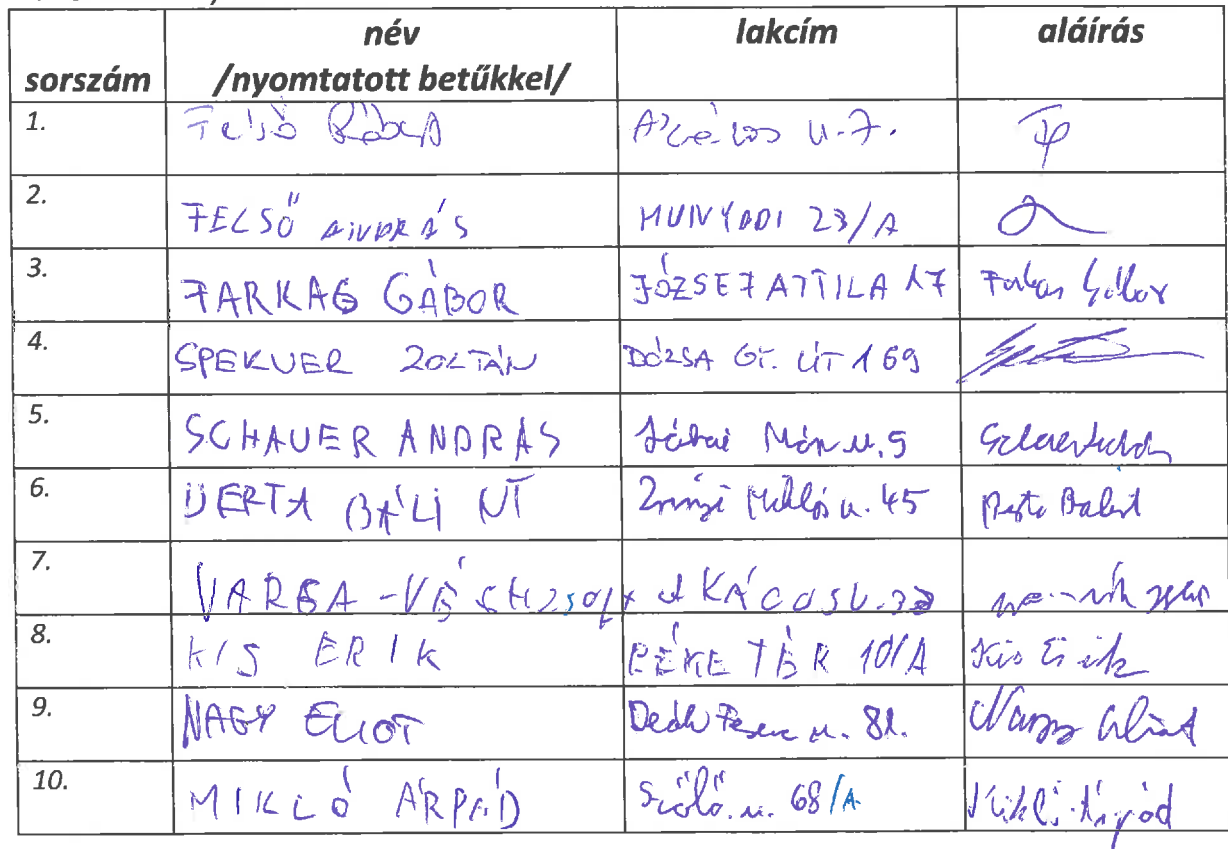 név lakcím aláírás
sorszám /nyomtatott betűkkel/
1. Felső Róbert u. 7.
2. FELSŐ ANDRÁS HUNYADI 23/A
3. FARKAS GÁBOR JÓZSEF ATTILA 17 Farkas Gábor
4. SPEKUER ZOLTÁN DÓZSA GY. ÚT 169
5. SCHAUER ANDRÁS Jókai Mór u. 5
6. BERTA BÁLINT Zrínyi Miklós u. 45 Berta Bálint
7. VARGA-VÉGH ZSOLT AKÁCOS U.
8. KIS ERIK BÉKE TÉR 10/A Kis Erik
9. NAGY ELIOT Deák Ferenc u. 81. Nagy Eliot
10. MIKLÓ ÁRPÁD Szőlő u. 68/A Mikló Árpád